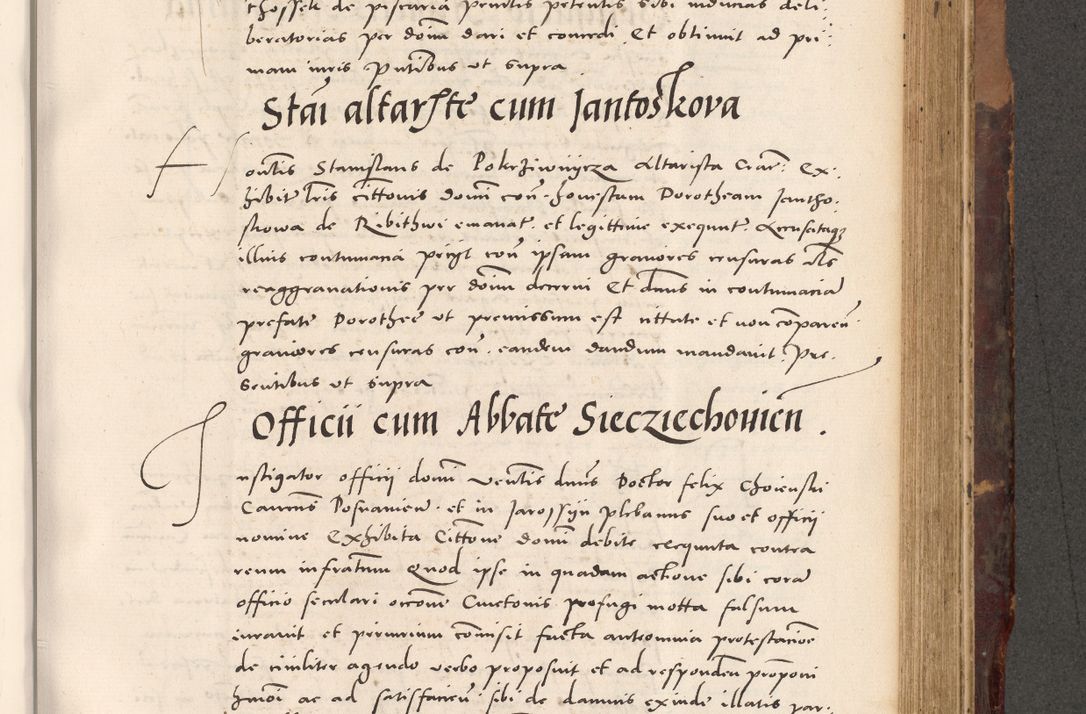 thossek de piscaria prentis petentis sibi inducias deli-
beratorias per domi dari et concedi. Et obtinuit ad pri-
mam iuris Pntibus ut supra
Stai altarste cum Jantoskova
Honestis Stanislaus de Pokrziwnycza Altarista Crac: Ex-
hibit lris citttonis domi con. honestam Dorotheam Jantho-
skowa de Ribithwi emanat. et legittime exequut. Accusataque
illius contumacia pciit con ipsam graviores censuras als
reaggravationis per domi decerni Et dnus in contumacia
prefate Dorothee ut premissum est citate et non comparen.
graviores censuras con. eandem dandum mandavit. Pre-
sentibus ut supra
Officii cum Abbate Siecziechovien.
Instigator officii domi ventis dnus Doctor felix Choienski
Cancus Posnanien. et in Jarossyn plebanus suo et officii
nomine Exhibita Cittone domi debite exequuta contra
reum infratum Quod ipse in quadam actione sibi cora
officio seculari occone Cmetonis profugi motta falsum
iuravit et periurium comisit facta anteomnia protestacioe
de civiliter agendo verbo proposuit et ad responden proponi
hmoi ac ad satisfacien. sibi de damnis exinde illatis par-